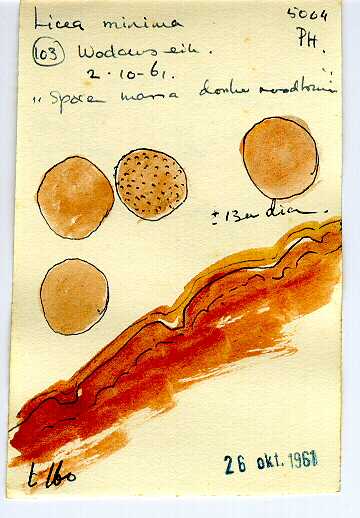 Licea minima
5004
PH.
(103) Wodans eik.
2-10-61.
"Spore massa donker roodbruin"
± 13 u diam.
t 160
26 okt. 1961